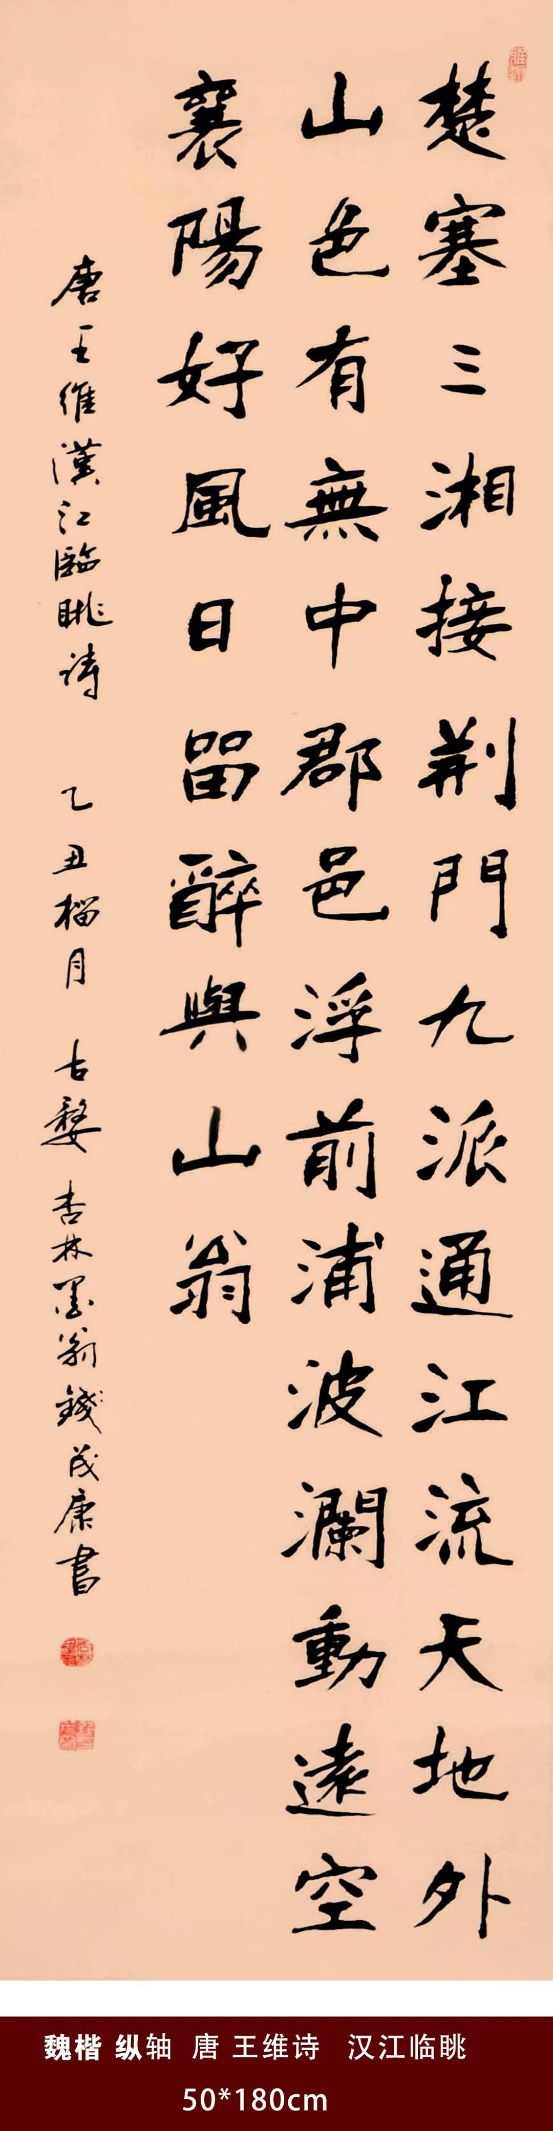 楚塞三湘接荆門九派通江流天地外
山色有無中郡邑浮前浦波瀾動遠空
襄陽好風日留醉與山翁
唐王維漢江臨眺詩 乙丑榴月 古婺 杏林墨翁錢茂康書
魏楷 纵轴 唐 王维诗 汉江临眺
50*180cm